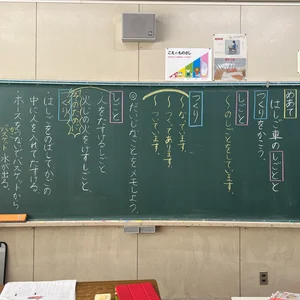 めあて
はしご車のしごとと
つくりをかこう。
しごと
〜のしごとをしています。
つくり
〜なっています。
〜つくってあります
〜ついています。
◎だいじなことをメモしよう。
しごと
人をたすけるしごと。
火じの火をけすしごと。
つくり
・はしごをのばしてかごの
中に人を入れてたすける。
・ホースをつないでバスケットから
水が出る。
こえのものさし